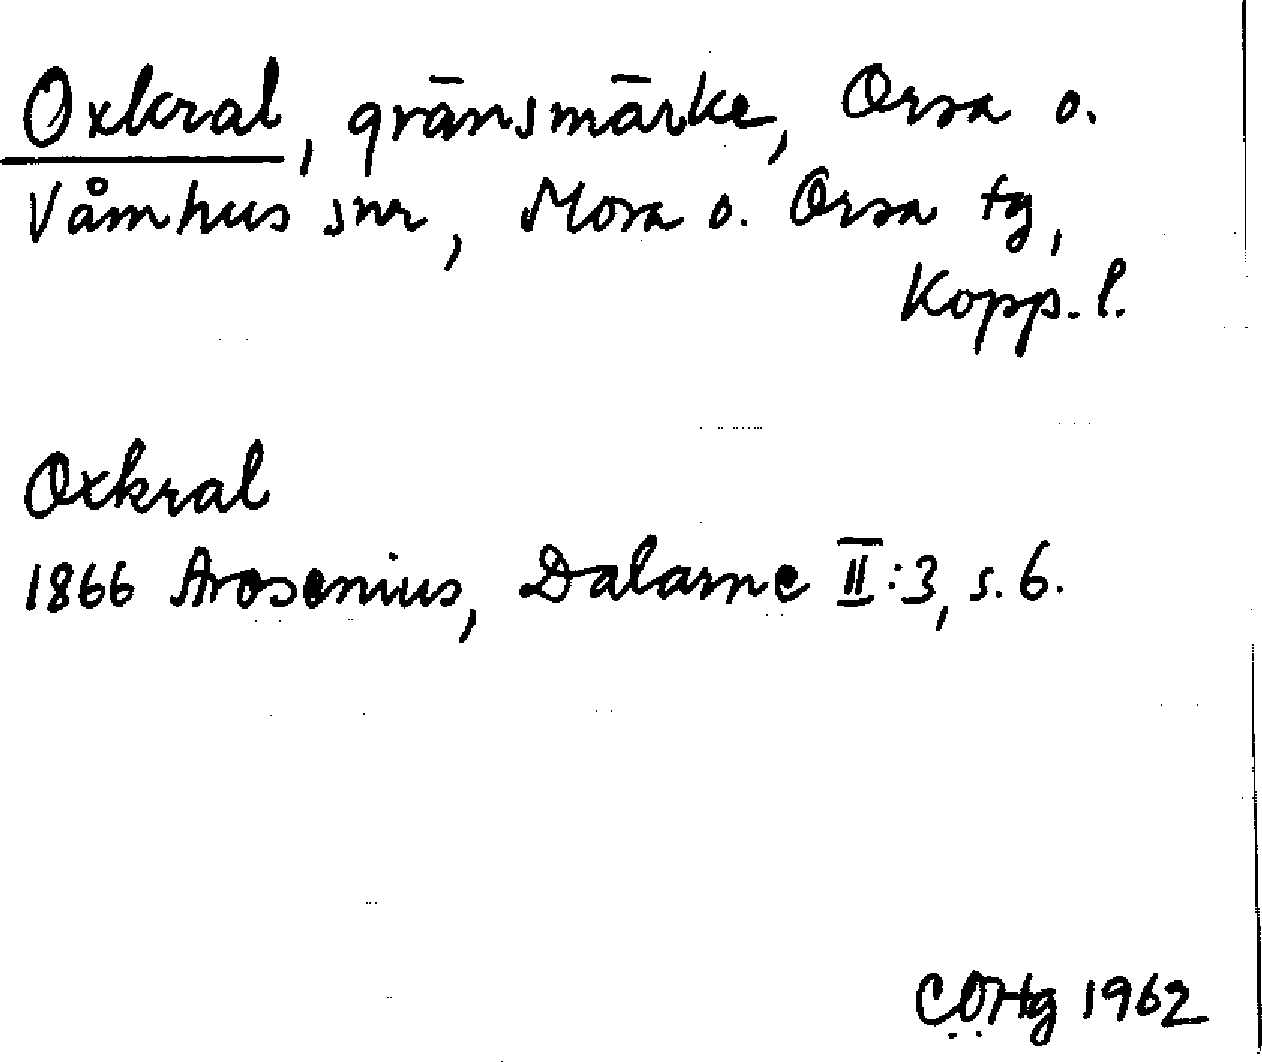 Oxkral, gränsmärke, Orsa o.
Våmhus snr, Mora o. Orsa tg,
Kopp. l.
Oxkral
1866 Arosenius, Dalarne II:3, s. 6.
1962